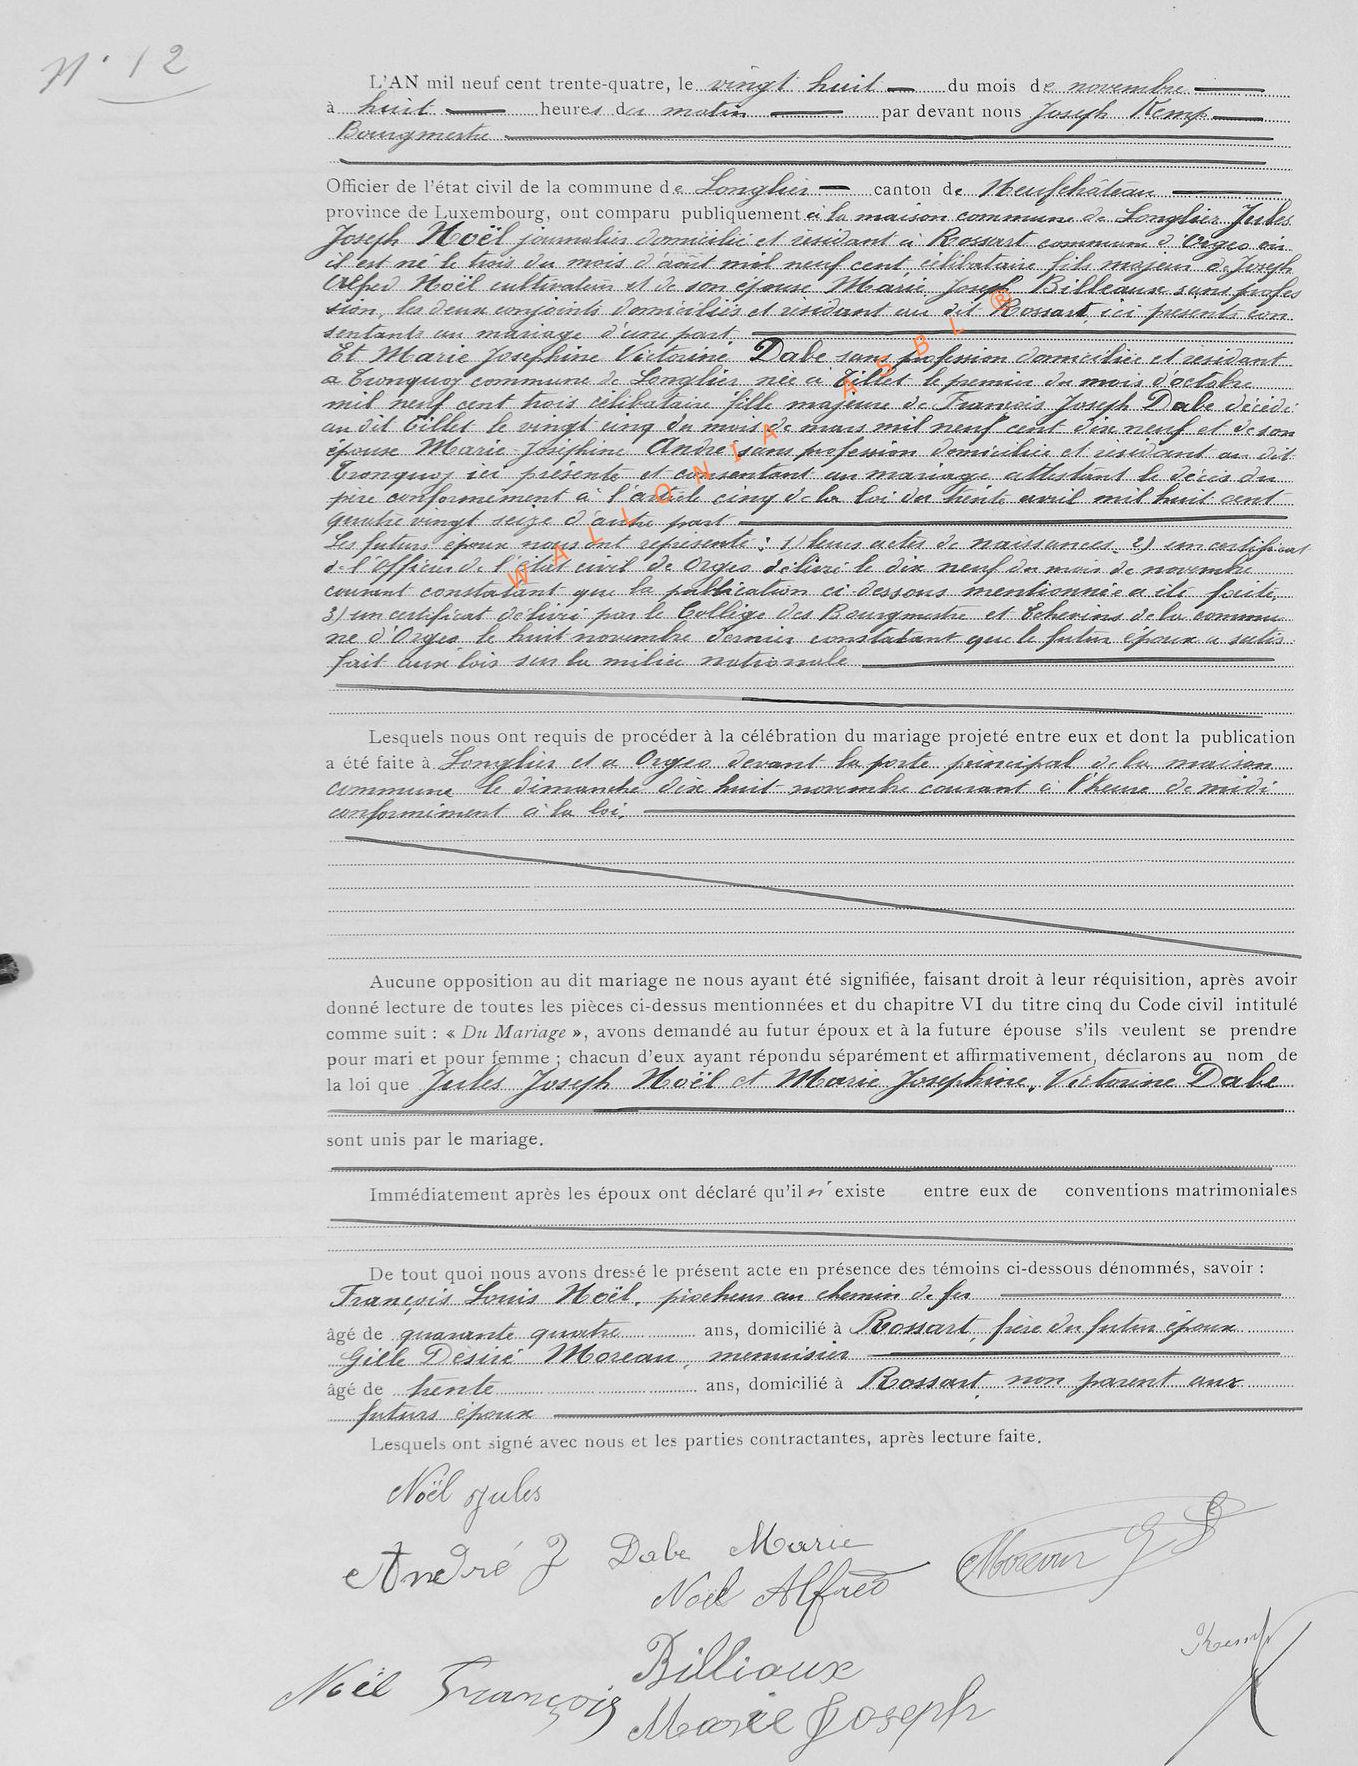 N° 12
L'AN mil neuf cent trente-quatre, le vingt huit du mois de novembre
à huit heures du matin par devant nous Joseph Kemp
Bourgmestre
Officier de l'état civil de la commune de Longlier canton de Neufchâteau
province de Luxembourg, ont comparu publiquement à la maison commune de Longlier Jules
Joseph Noël journalier domicilié et résidant à Rossart commune d'Orgeo où
il est né le trois du mois d'août mil neuf cent, célibataire fils majeur de Joseph
Alfred Noël cultivateur et de son épouse Marie Joseph Billeaux sans profes
sion, les deux conjoints domiciliés et résidant au dit Rossart, ici présents con
sentants au mariage d'une part
Et Marie Josephine Victorine Dabe sans profession domiciliée et résidant
à Tronquoy commune de Longlier née à Tillet le premier du mois d'octobre
mil neuf cent trois célibataire fille majeure de François Joseph Dabe décédé
au dit Tillet le vingt cinq du mois de mars mil neuf cent dix neuf et de son
épouse Marie-Joséphine André sans profession domiciliée et résidant au dit
Tronquoy ici présente et consentant au mariage attestant le décès du
père conformément à l'article cinq de la loi du trente avril mil huit cent
quatre vingt seize d'autre part
Les futurs époux nous ont représenté : 1) leurs actes de naissances. 2) un certificat
de l'officier de l'état civil de Orgeo délivré le dix neuf du mois de novembre
courant constatant que la publication ci-dessous mentionnée a été faite,
3) un certificat délivré par le Collège des Bourgmestre et Echevins de la commu
ne d'Orgeo le huit novembre dernier constatant que le futur époux a satis
fait aux lois sur la milice nationale
Lesquels nous ont requis de procéder à la célébration du mariage projeté entre eux et dont la publication
a été faite à Longlier et à Orgeo devant la porte principal de la maison
commune le dimanche dix huit novembre courant à l'heure de midi
conformément à la loi.
Aucune opposition au dit mariage ne nous ayant été signifiée, faisant droit à leur réquisition, après avoir
donné lecture de toutes les pièces ci-dessus mentionnées et du chapitre VI du titre cinq du Code civil intitulé
comme suit : « Du Mariage », avons demandé au futur époux et à la future épouse s'ils veulent se prendre
pour mari et pour femme ; chacun d'eux ayant répondu séparément et affirmativement, déclarons au nom de
la loi que Jules Joseph Noël et Marie Josephine, Victorine Dabe
sont unis par le mariage.
Immédiatement après les époux ont déclaré qu'il n'existe entre eux de conventions matrimoniales
De tout quoi nous avons dressé le présent acte en présence des témoins ci-dessous dénommés, savoir :
François Louis Noël, piocheur au chemin de fer
âgé de quarante quatre ans, domicilié à Rossart, frère du futur époux
Gille Désiré Moreau, menuisier
âgé de trente ans, domicilié à Rossart, non parent aux
futurs époux
Lesquels ont signé avec nous et les parties contractantes, après lecture faite.
Noël Jules
André J Dabe Marie
Noël Alfred
Moreau G D
Kemp
Billiaux
Noël François
Marie Joseph
WALLONIA ASBL ®